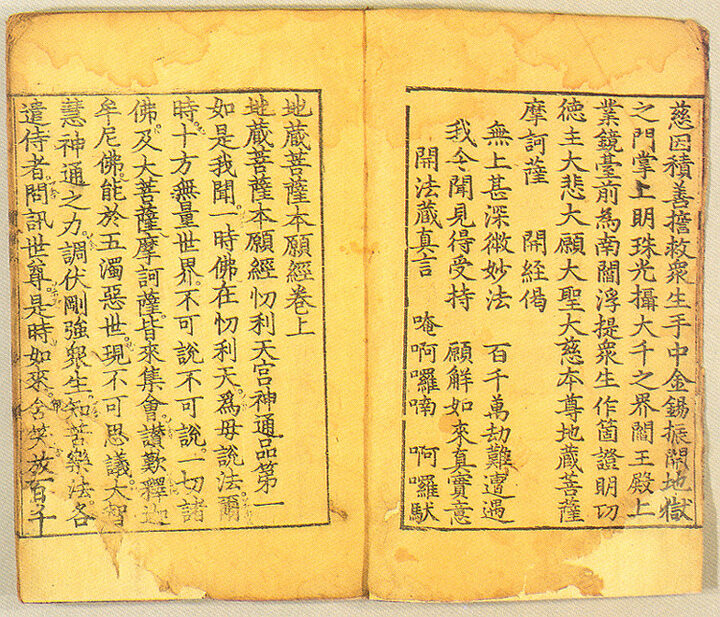 慈因積善擔救衆生手中金錫振開地獄
之門掌上明珠光攝大千之界閻王殿上
業鏡臺前為南閻浮提衆生作箇證明切
德主大悲大願大聖大慈本尊地藏菩薩
摩訶薩 開経偈
無上甚深微妙法 百千萬劫難遭遇
我今聞見得受持 願解如來真實意
開法藏真言 唵啊囉喃 啊囉馱
地藏菩薩本願經卷上
地藏菩薩本願經忉利天宮神通品第一
如是我聞一時佛在忉利天爲母說法爾
時十方無量世界不可說不可說一切諸
佛及大菩薩摩訶薩皆來集會讃歎釋迦
牟尼佛能於五濁惡世現不可思議大智
慧神通之力調伏剛強衆生知苦樂法各
遣侍者問訊世尊是時如來含笑放百千